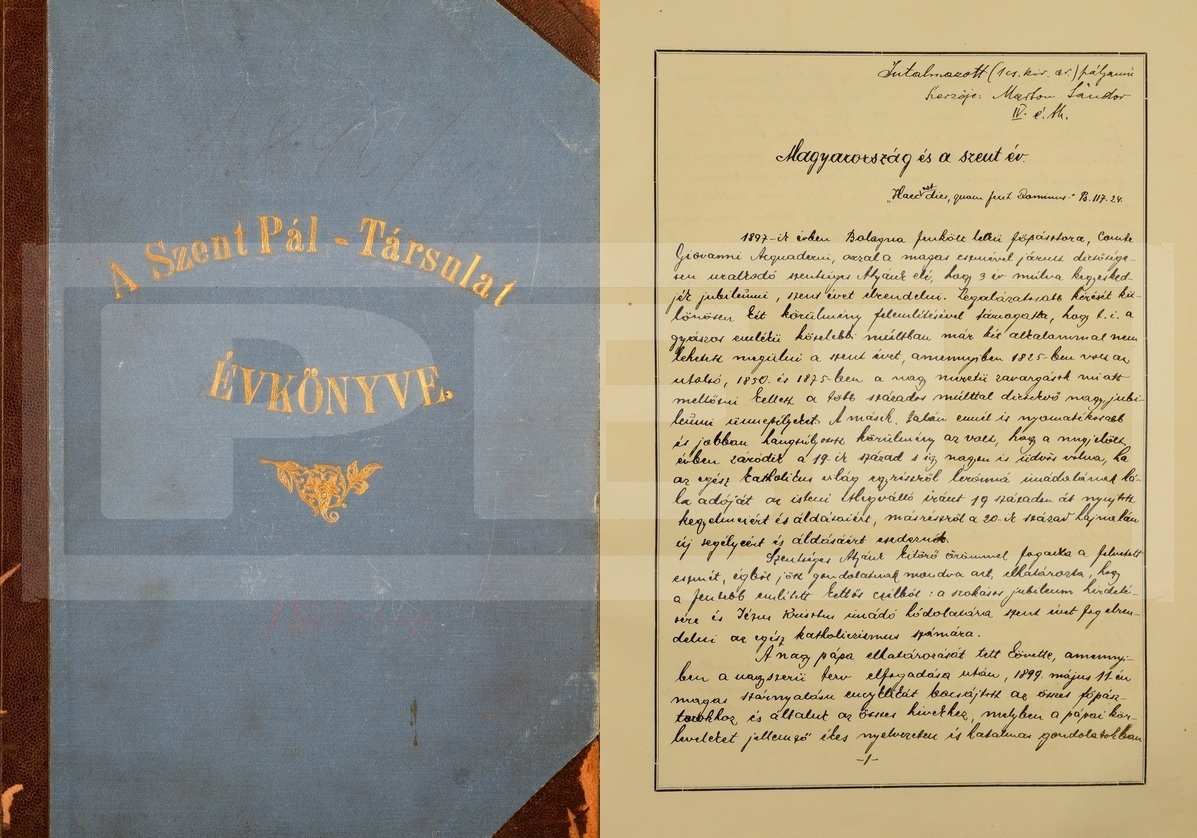 A Szent Pál - Társulat
ÉVKÖNYVE.
Jutalmazott (1 cs. kir. ar.) pályamű
Szerzője: Marton Sándor
IV. é. th.
Magyarország és a szent év.
"Haec est dies, quam fecit Dominus" Ps. 117. 24.
1897-ik évben Bologna fenkölt lelkü főpásztora, Comte
Giovanni Acquaderni, azzal a magas eszmével járult dicsősége-
sen uralkodó szentséges Atyánk elé, hogy 3 év mulva kegyesked-
jék jubileumi, szent évet elrendelni. Legalázatosabb kérését kü-
lönösen két körülmény felemlítésével támogatta, hogy t. i. a
gyászos emlékü közelebbi multban már két alkalommal nem
lehetett megülni a szent évet, amennyiben 1825-ben volt az
utolsó, 1850. és 1875-ben a nagy méretü zavargások miatt
mellőzni kellett a több százados multtal dicsekvő nagy jubi-
leumi ünnepélyeket. A másik, talán ennél is nyomatékosabb
és jobban hangsúlyozott körülmény az volt, hogy a megjelölt
évben záródik a 19-ik század s igy nagyon is üdvös volna, ha
az egész katholikus világ egyrészről leróná imádatának há-
la adóját az isteni Megváltó iránt 19 századon át nyujtott
kegyelmeiért és áldásaiért, másrészről a 20-ik század hajnalán
új segélyeért és áldásáért esdeznék.
Szentséges Atyánk kitörő örömmel fogadta a felvetett
eszmét, égből jött gondolatnak mondva azt, elhatározta, hogy
a fentebb említett kettős czélból: a szokásos jubileum hirdeté-
sére és Jézus Krisztus imádó hódolatára szent évet fog elren-
delni az egész katholiczismus számára.
A nagy pápa elhatározását tett követte, amennyi-
ben a nagyszerü terv elfogadása után, 1899. május 11-én
magas szárnyalásu encyklikát bocsájtott az összes főpász-
torokhoz és általuk az összes hivekhez, melyben a pápai kör-
leveleket jellemző ékes nyelvezeten és hatalmas gondolatokban
-1-